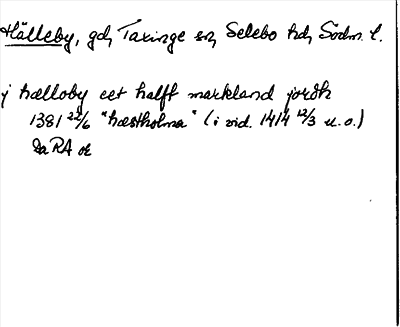 Hälleby, gd, Taxinge sn, Selebo hd, Södm. l.
j hælloby eet halft markland jordh
1381 22/6 "hæstholma" (i vid. 1414 12/3 u.o.)
RA or